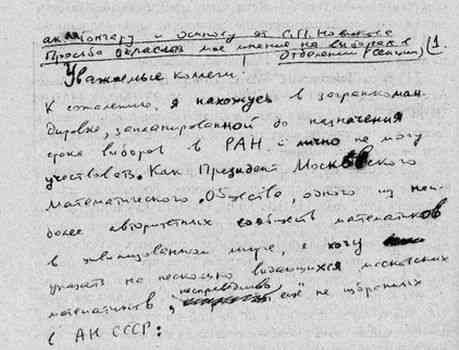 ак. Гончару и Осипову от С.П. Новикова
Просьба огласить мое мнение на выборах в Отделении (секции) (1.
Уважаемые коллеги,
К сожалению, я нахожусь в загранкоман-
дировке, запланированной до назначения
срока выборов в РАН и лично не могу
участвовать. Как Президент Московского
Математического Общества, одного из наи-
более авторитетных сообществ математиков
в цивилизованном мире, я хочу
указать на несколько выдающихся московских
математиков, несправедливо еще не избранных
в АН СССР: